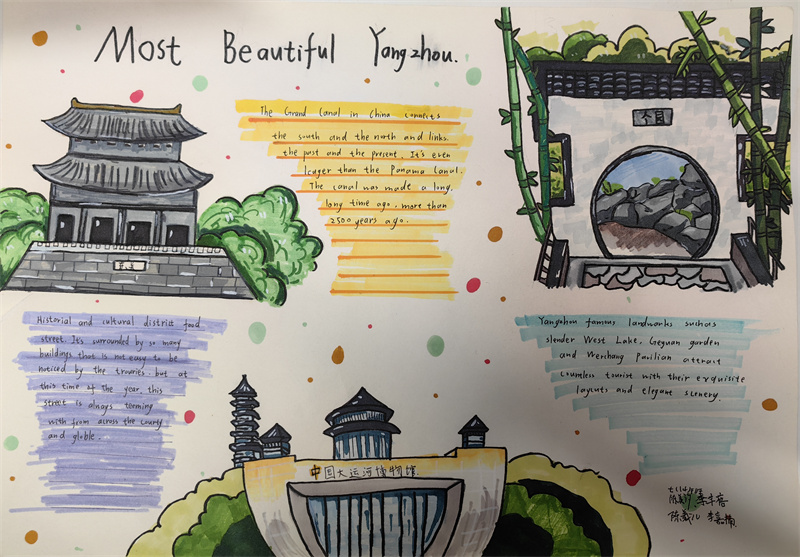 Most Beautiful Yangzhou.
The Grand Canal in China connects
the south and the north and links
the past and the present. It's even
lcager than the Panama Canal.
The canal was made a long,
long time ago. more than
2500 years ago.
个园
Historial and cultural district food
street. It's surrounded by so many
buildings that is not easy to be
noticed by the truaries but at
this time of the year, this
street is always terming
with from across the courty
and globle.
Yangzhou famous landwarks suchas
slender West Lake, Geyuan garden
and Wenchang Pavilian attract
countless tourist with their exquisite
layouts and elegant scenery.
中国大运河博物馆